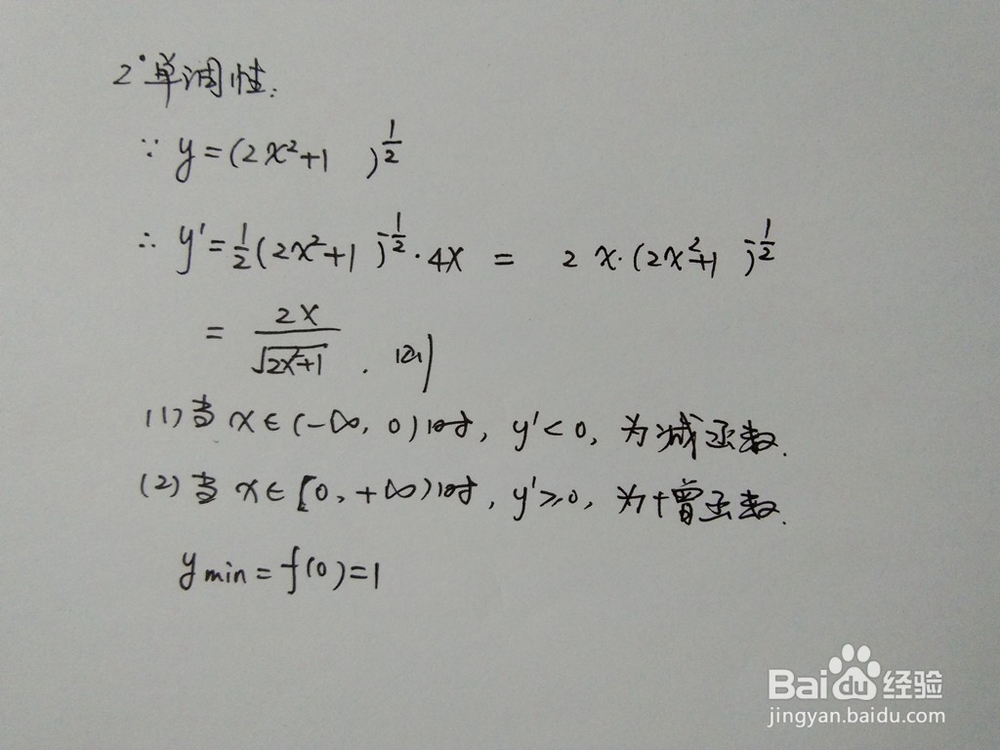 2°单调性:
∵ y=(2x²+1 )^{1/2}
∴ y'=1/2(2x²+1 )^{-1/2}·4x = 2x·(2x²+1 )^{-1/2}
= 2x/√(2x²+1) . 则
(1)当x∈(-∞, 0)时, y'<0, 为减函数.
(2)当x∈[0, +∞)时, y'≥0, 为增函数.
y min=f(0)=1
Baidu经验
jingyan.baidu.com